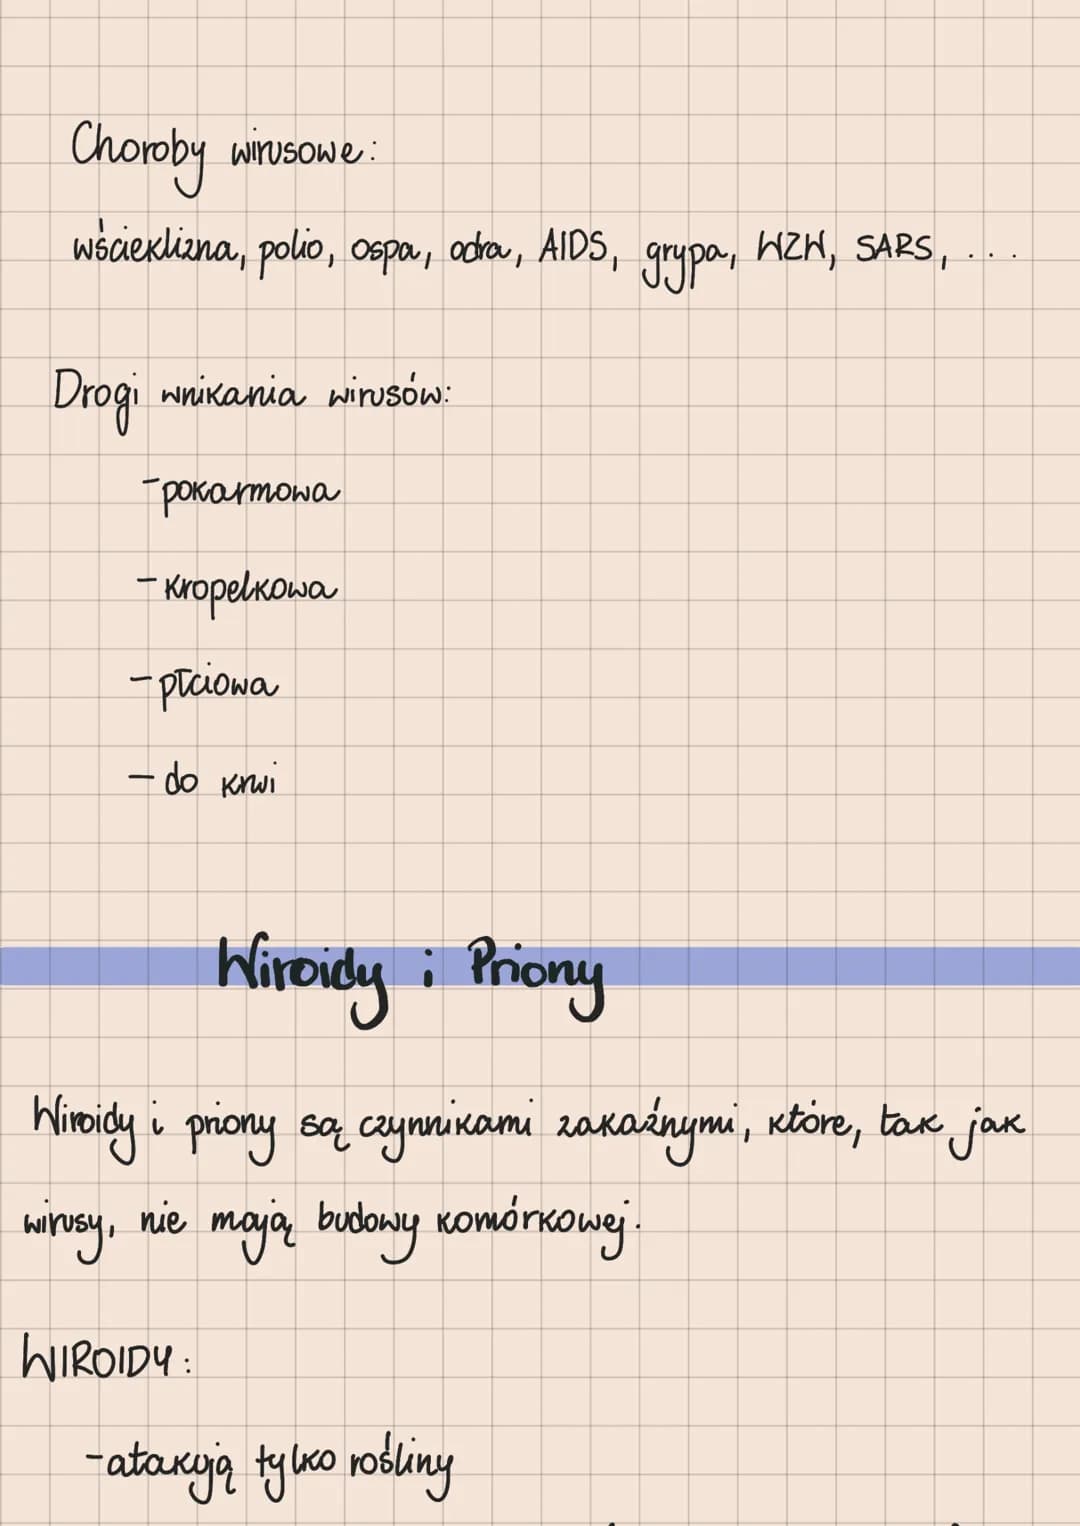 Choroby wirusowe:
wścieklizna, polio, ospa, odra, AIDS, grypa, WZW, SARS, ...
Drogi wnikania wirusów:
- pokarmowa
- kropelkowa
- płciowa
- do krwi
Wiroidy i Priony
Wiroidy i priony są czynnikami zakaźnymi, które, tak jak
wirusy, nie mają budowy komórkowej.
WIROIDY:
- atakują tylko rośliny